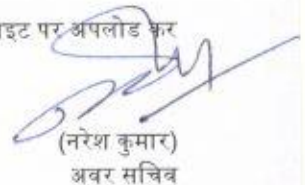 पर अपलोड कर
(नरेश कुमार)
अवर सचिव